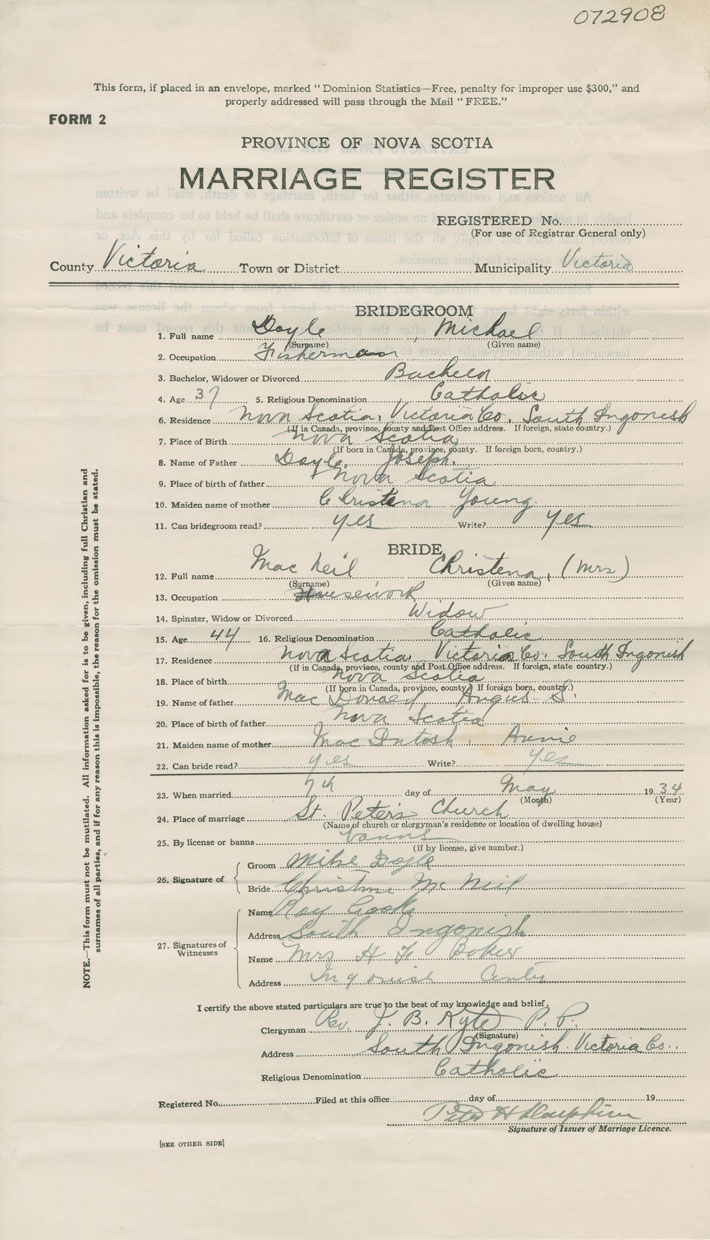 072908
This form, if placed in an envelope, marked "Dominion Statistics—Free, penalty for improper use $300," and
properly addressed will pass through the Mail "FREE."
FORM 2
PROVINCE OF NOVA SCOTIA
MARRIAGE REGISTER
REGISTERED No.
(For use of Registrar General only)
County Victoria Town or District Municipality Victoria
BRIDEGROOM
1. Full name Doyle, Michael
(Surname) (Given name)
2. Occupation Fisherman
3. Bachelor, Widower or Divorced
4. Age 37 5. Religious Denomination Catholic
6. Residence Nova Scotia, Victoria Co. South Ingonish
(If in Canada, province, county and Post Office address. If foreign, state country.)
7. Place of Birth Nova Scotia
(If born in Canada, province, county. If foreign born, country.)
8. Name of Father Doyle, Joseph.
9. Place of birth of father Nova Scotia
10. Maiden name of mother Christena Young
11. Can bridegroom read? yes Write? yes
BRIDE
12. Full name Mac Neil Christena, (Mrs)
(Surname) (Given name)
13. Occupation Housework
14. Spinster, Widow or Divorced Widow
15. Age 44 16. Religious Denomination Catholic
17. Residence Nova Scotia. Victoria Co. South Ingonish
(If in Canada, province, county and Post Office address. If foreign, state country.)
18. Place of birth Nova Scotia
(If born in Canada, province, county. If foreign born, country.)
19. Name of father Mac Donald Angus S.
20. Place of birth of father Nova Scotia
21. Maiden name of mother Mac Intosh, Annie
22. Can bride read? yes Write? yes
23. When married 7th day of May 1934
(Month) (Year)
24. Place of marriage St. Peter's Church
(Name of church or clergyman's residence or location of dwelling house)
25. By license or banns banns
(If by license, give number.)
26. Signature of
Groom Mike Doyle
Bride Christine Mc Neil
27. Signatures of Witnesses
Name Roy
Address South Ingonish
Name Mrs H
Address Ingonish Centre
I certify the above stated particulars are true to the best of my knowledge and belief.
Clergyman Rev. J. B. Kyte P. P.
(Signature)
Address South Ingonish Victoria Co..
Religious Denomination Catholic
Registered No. Filed at this office day of 19
Peter H
Signature of Issuer of Marriage Licence.
[SEE OTHER SIDE]
NOTE.—This form must not be mutilated. All information asked for is to be given, including full Christian and
surnames of all parties, and if for any reason this is impossible, the reason for the omission must be stated.